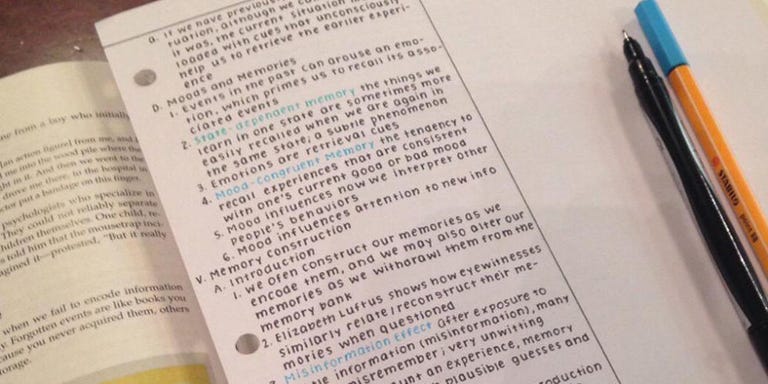 a. If we have previous
tuation, although we ca
it was, the current situation
loaded with cues that unconsciously
help us to retrieve the earlier experi-
ence
D. Moods and Memories
1. Events in the past can arouse an emo-
tion, which primes us to recall its asso-
ciated events
2. State-dependent memory the things we
learn in one state are sometimes more
easily recalled when we are again in
the same state; a subtle phenomenon
3. Emotions are retrieval cues
4. Mood-congruent Memory the tendency to
recall experiences that are consistent
with one's current good or bad mood
5. Mood influences how we interpret other
people's behaviors
6. Mood influences attention to new info
V. Memory Construction
A. Introduction
1. we ofen construct our memories as we
encode them, and we may also alter our
memories as we withdrawl them from the
memory bank
2. Elizabeth Luftus shows how eyewitnesses
similarly relate/reconstruct their me-
mories when questioned
Misinformation Effect after exposure to
tle information (misinformation), many
misremember; very unwitting
unt an experience, memory
plausible guesses and
roduction
ne from a boy who initially
an action figurel from me, and
l me into the wood pile where th
ght in it. And then we went to the
drove me there, to the hospital
ctor put a bandage on this finger.
psychologists who specialize in
They could not reliably separate
children themselves. One child, re-
s told him that the mousetrap inci-
agined it—protested, "But it really
when we fail to encode information
y. Forgotten events are like books you
cause you never acquired them, others
orage.
STABILO
point 88